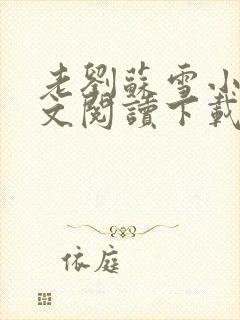 老劉蘇雪小
文閱讀下載
依庭